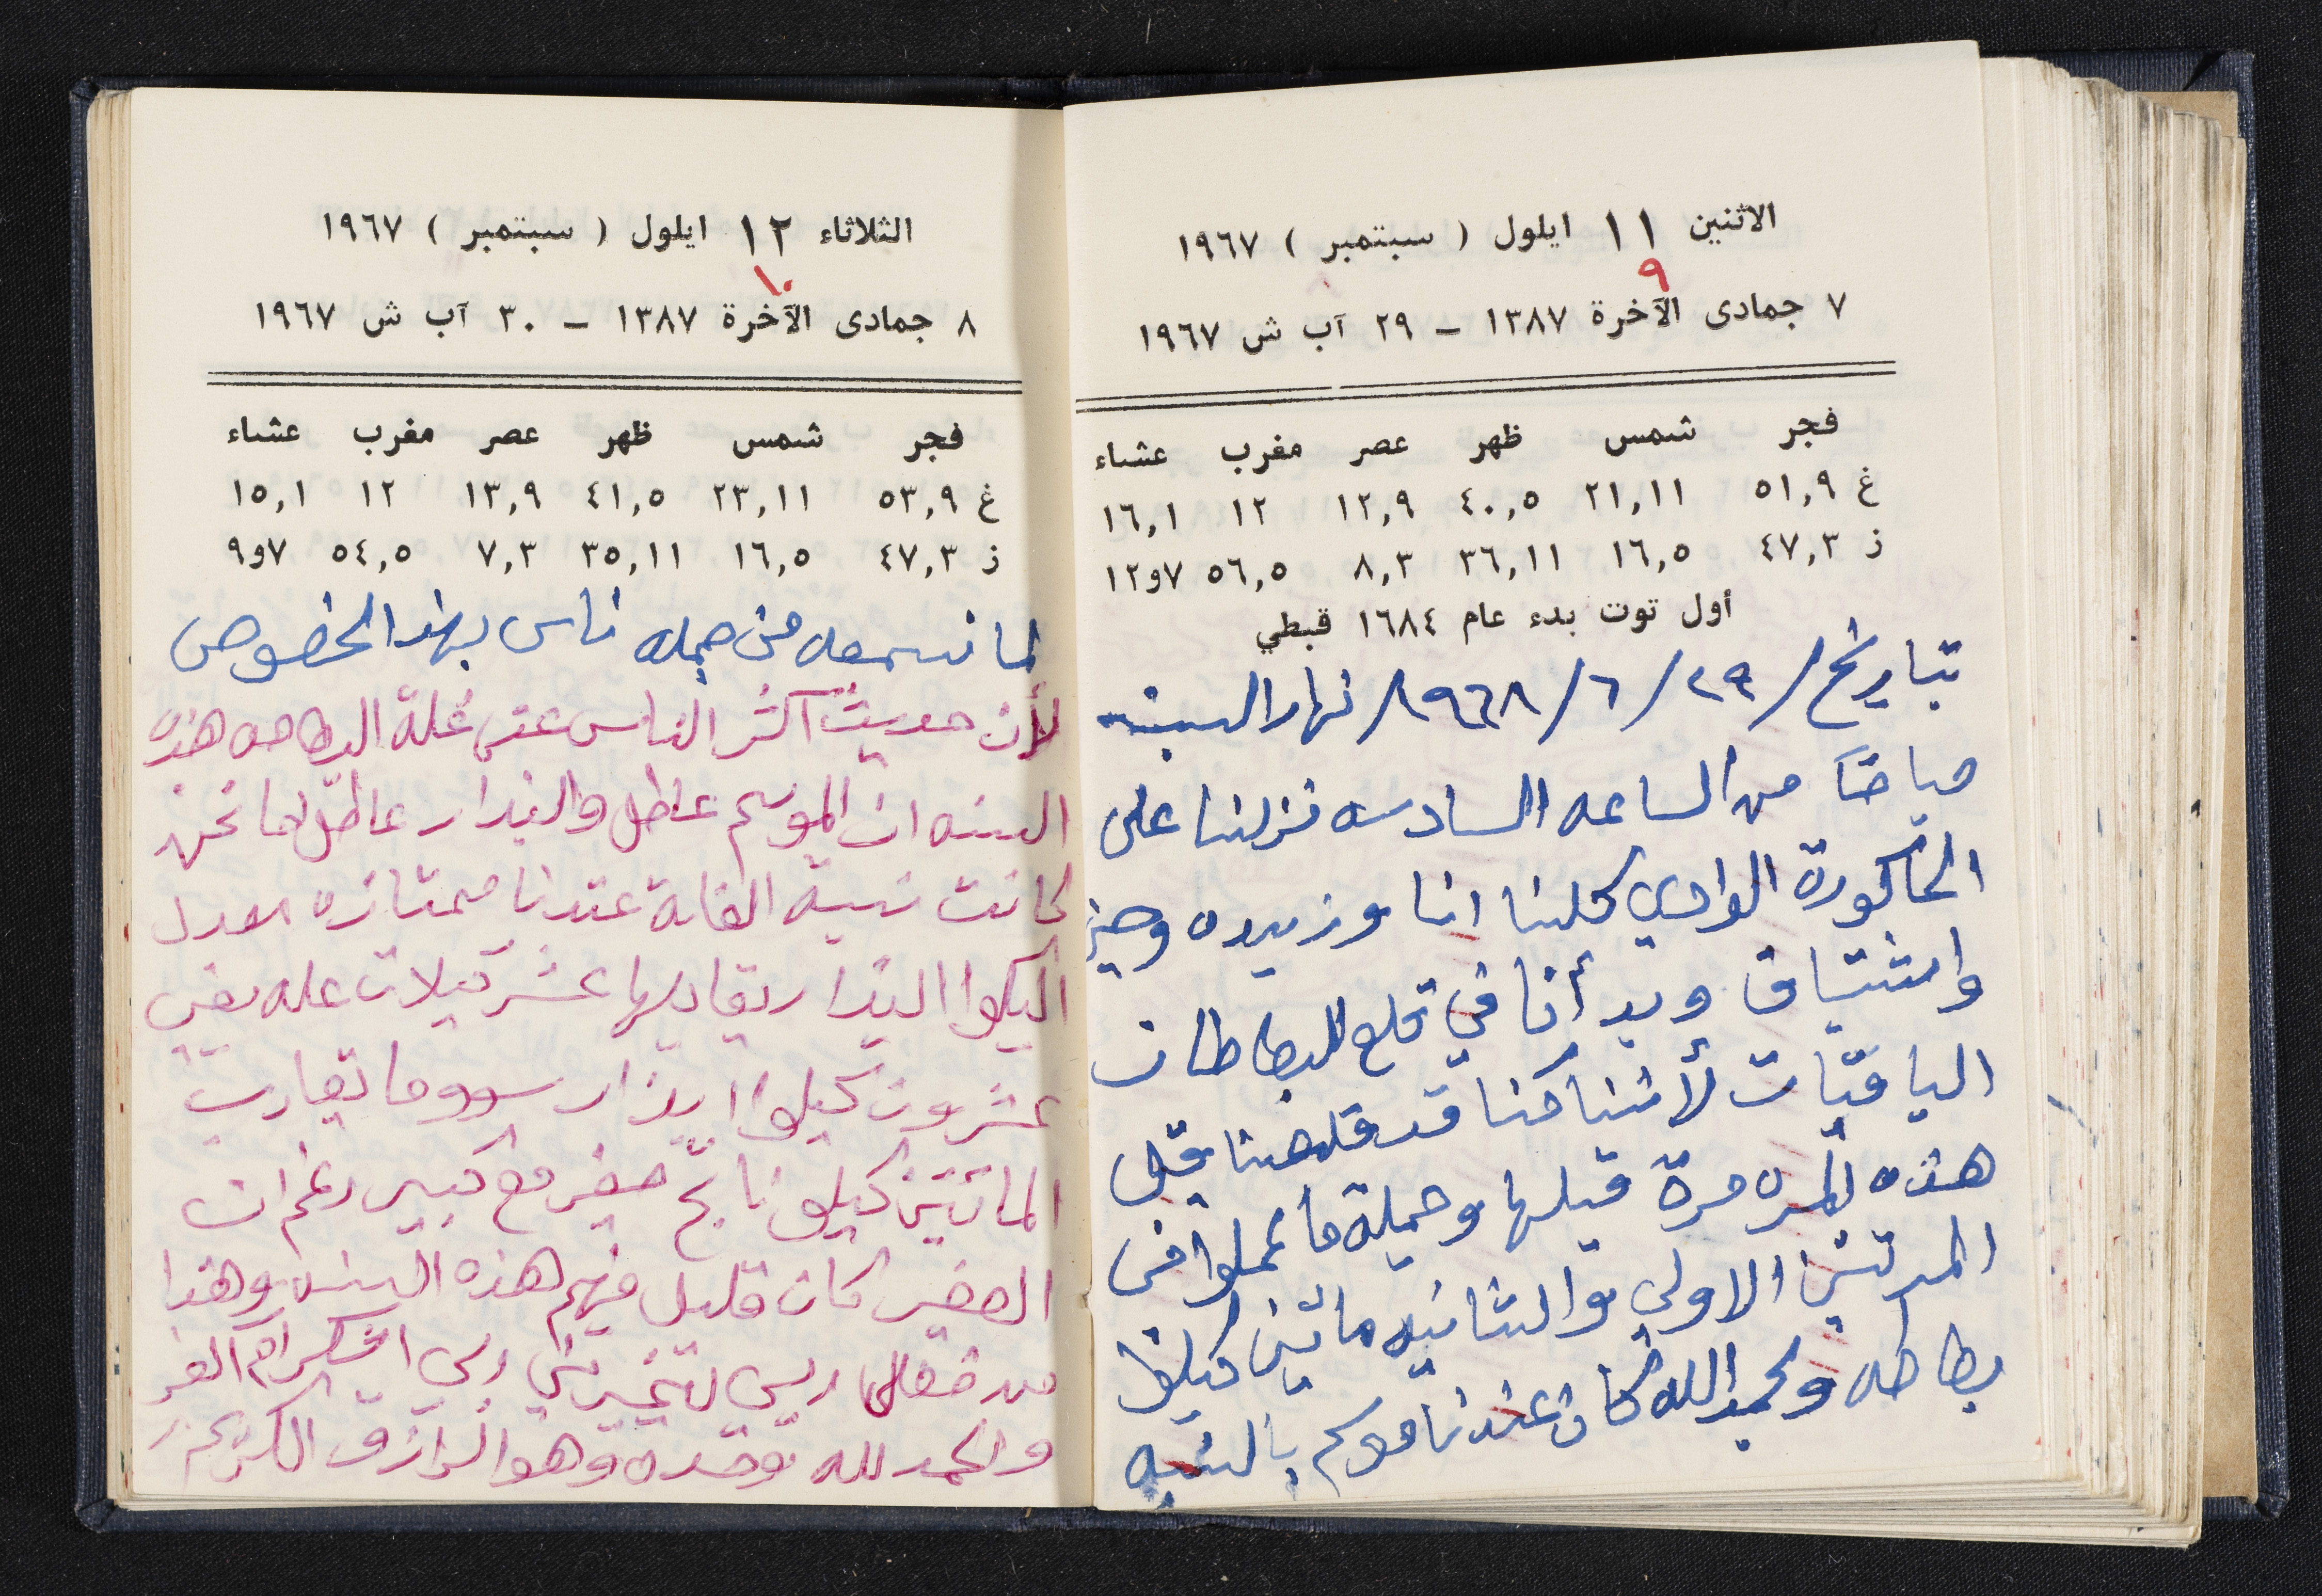 الاثنين ١١ ايلول ( سبتمبر ) ١٩٦٧
٩
٧ جمادى الآخرة ١٣٨٧ – ٢٩ آب ش ١٩٦٧
فجر شمس ظهر عصر مغرب عشاء
غ ٥١,٩ ٢١,١١ ٤٠,٥ ١٢,٩ ١٢ ١٦,١
ز ٤٧,٣ ١٦,٥ ٣٦,١١ ٨,٣ ٥٦,٥ ٧و١٢
أول توت بدء عام ١٦٨٤ قبطي
بتاريخ / ٢٩ / ٦ / ١٩٦٨ / نهار السبت
صباحاً من الساعه السادسه نزلنا على
الحاكورة الوادي كلنا انا وزبيده
واشتياق وبدأنا في قلع البطاطات
الباقيات لأننا كنا قد قلعنا قبل
هذه المره مرة قبلها وجملة ما عملوا في
المرتين الاولي والثانيه مائتين كيلوا
بطاطه وبحمد الله كان عندنا موسم بالنسبه
الثلاثاء ١٢ ايلول ( سبتمبر ) ١٩٦٧
١٠
٨ جمادى الآخرة ١٣٨٧ – ٣٠ آب ش ١٩٦٧
فجر شمس ظهر عصر مغرب عشاء
غ ٥٣,٩ ٢٣,١١ ٤١,٥ ١٣,٩ ١٢ ١٥,١
ز ٤٧,٣ ١٦,٥ ٣٥,١١ ٧,٣ ٥٤,٥ ٧و٩
لما نسمعه من جمله ناس بهذا الخصوص
لأن حديث اكثر الناس عن غلة البطاطه هذه
السنه ان الموسم عاطل والبذار عاطل اما نحن
كانت نسبة الغلة عندنا ممتازه بمعدل
الكيلوا البذار يقابلها عشر كيلات غله يعني
عشرون كيلوا بذار سووا ما تقارب
المائتين كيلو ناتج صغير مع كبير رغم ان
الصغير كان قليل فيهم هذه السنه وهذا
من فضل ربي
والحمد لله وحده وهو الرازق الكريم